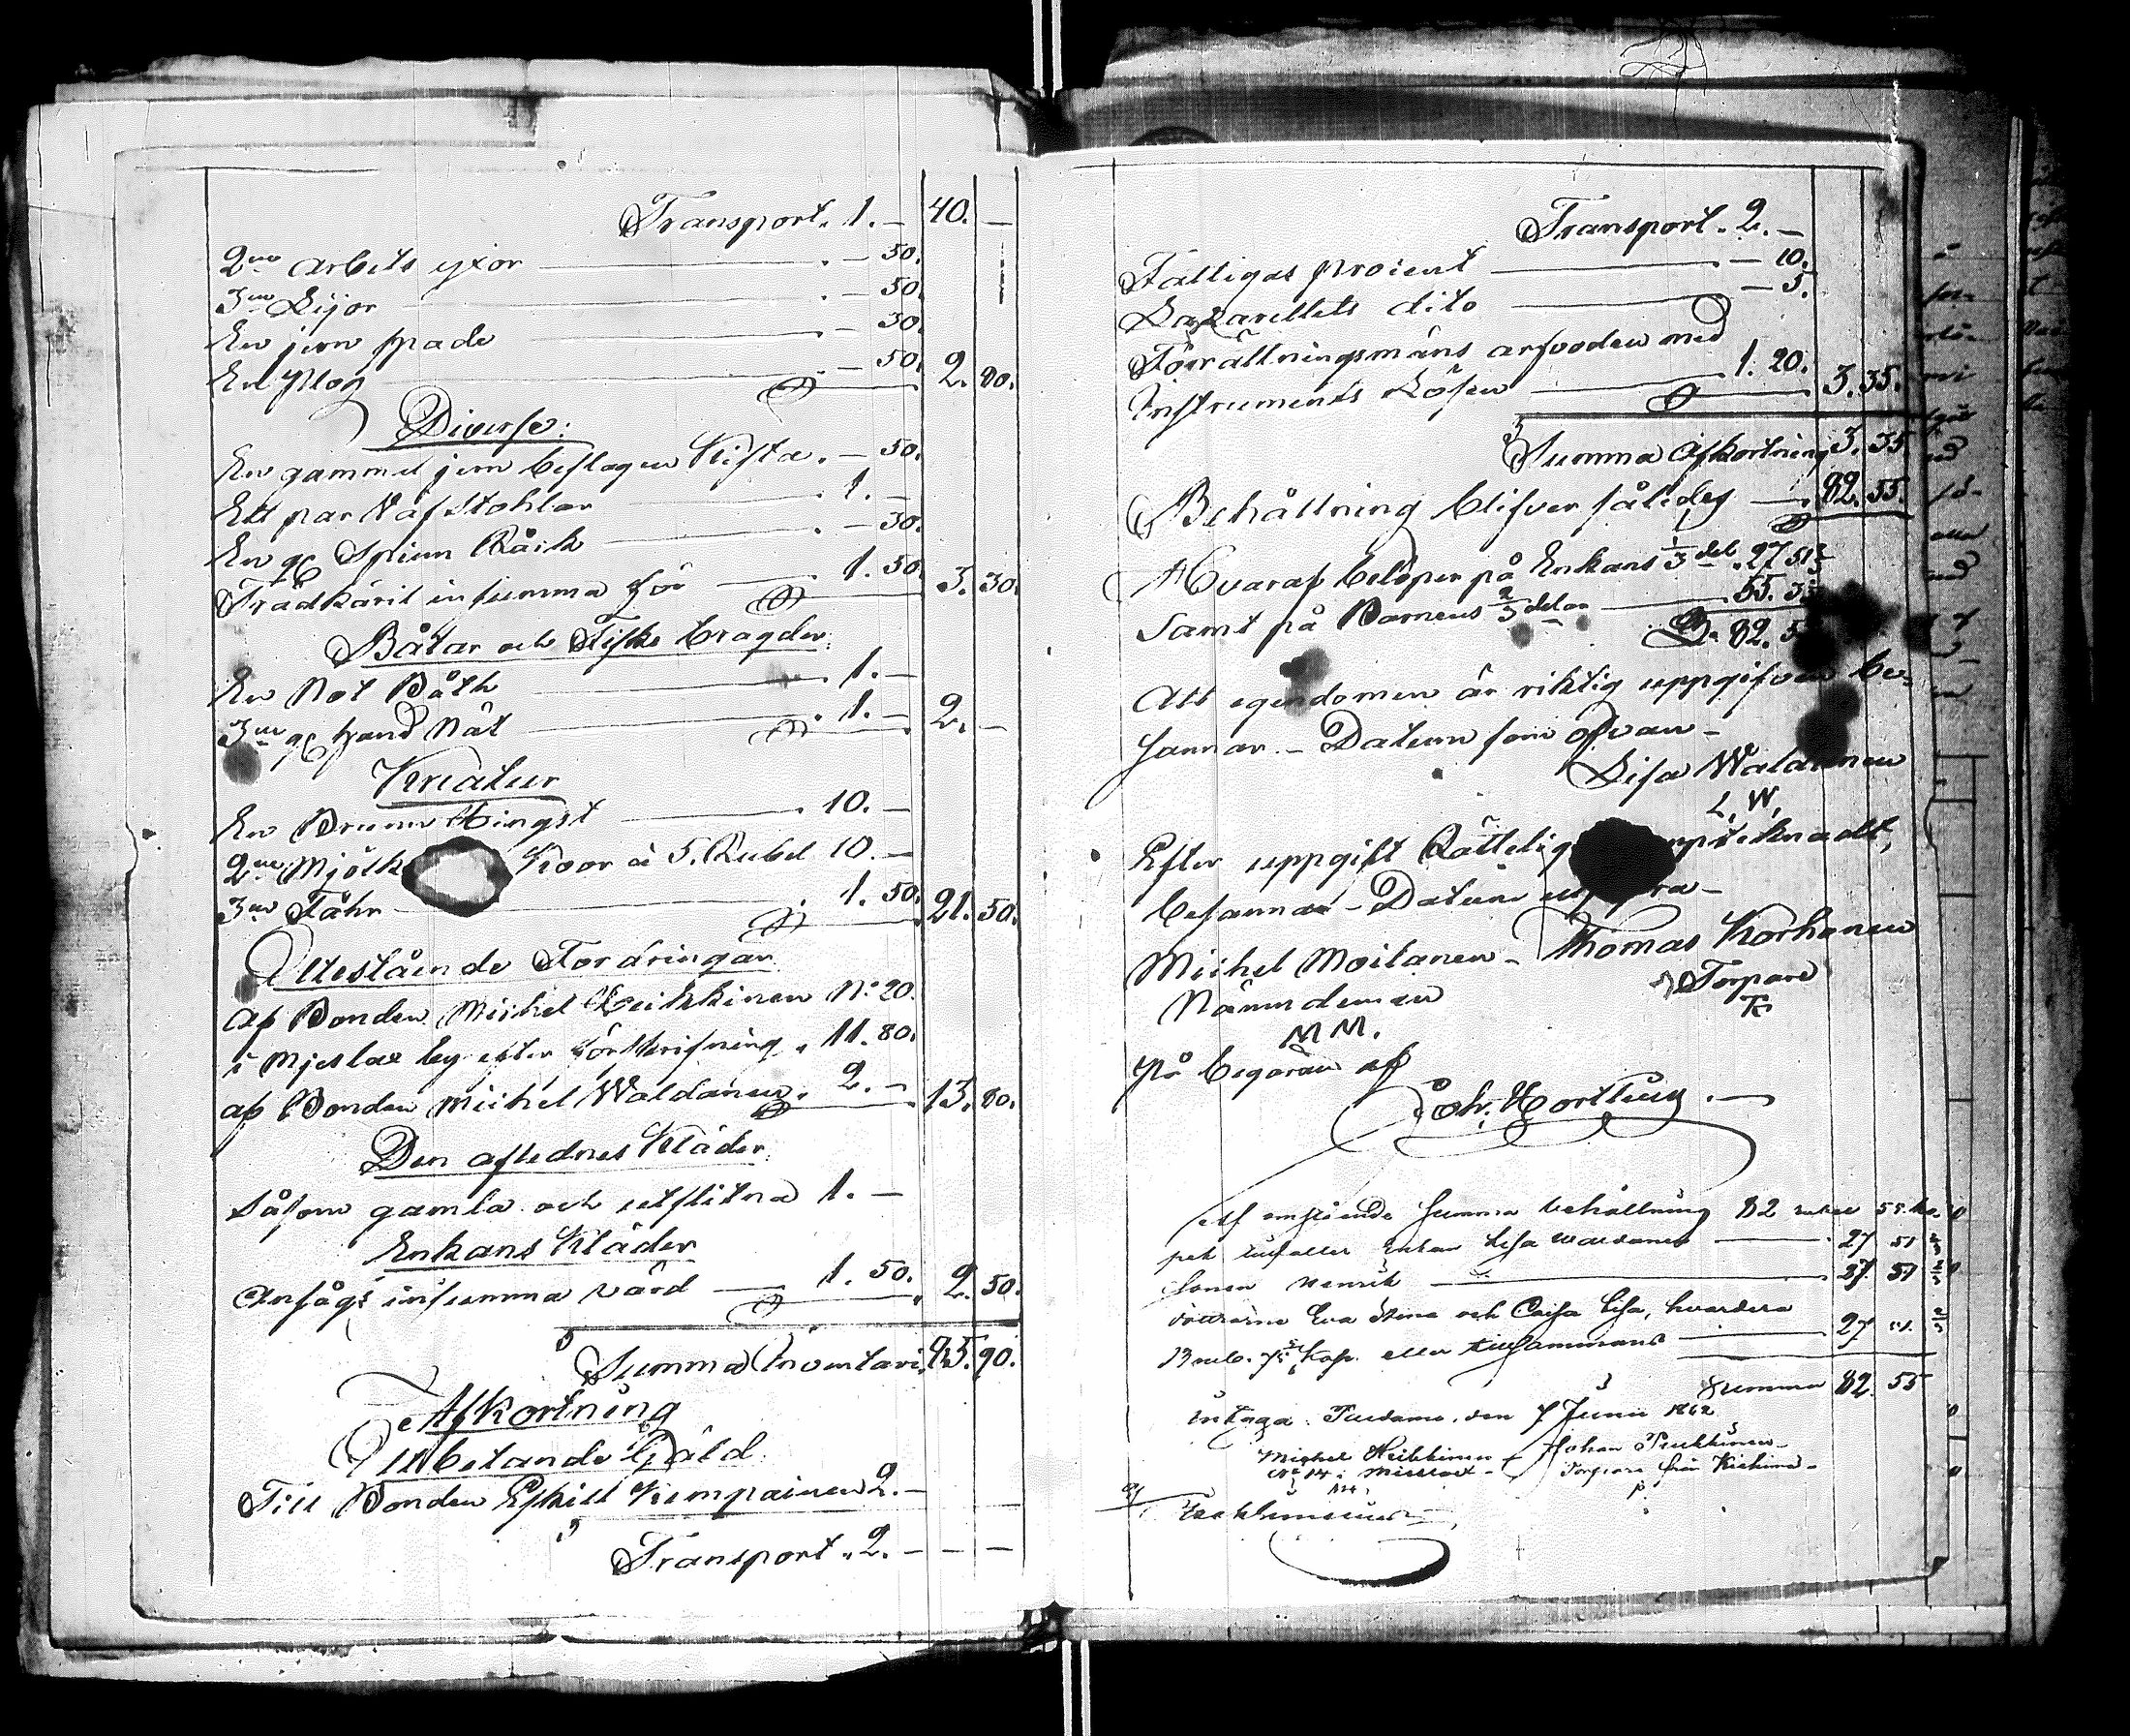 Transport. 1. — 40. —
2ne arbets yxor — . — 50.
3ne Lijor — . — 50.
En jern spade — . — 30.
En Plog — . — 50. 2. 80.
Diverse:
En gammel jern beslagen Kista. — 50.
Ett par Väfstohlar . 1. —
En gl Spinn Råck . — 30.
Trädkäril in summa för . 1. 50 3. 30.
Båtar och Fiske bragder.
En Not Båth 1. —
3ne gl hand Nät . 1. — 2. —
Kreatur
En Brunn Hingst . 10. —
2ne Mjölk Koor à 5. Rubel 10. —
3ne Fåhr . 1. 50. 21. 50.
Utestående Fordringar
af Bonden Michel Heikkinen No 20.
i Mjeslax by efter förskrifning . 11. 80.
af Bonden Michel Waldanen. 2. — 13. 80.
Den aflednes Kläder
Såsom gamla och utslitna 1. —
Enkans Kläder
Ansågs insumma värd 1. 50. 2. 50.
Summa Inventari. 85. 90.
Afkortning
Utbetande Gäld.
Till Bonden Eskill Kempainen 2. —
Transport. 2. — — —
Transport. 2. —
Fattigas procent . — 10.
Lazarettets dito — 5.
Förrättningsmäns arfvoden med
Instruments Lösen 1. 20. 3. 35.
Summa Afkortning 3. 35.
Behållning blifver således 82. 55.
Hvaraf belöper på Enkans 1/3 del . 27 51 2/3
Samt på Barnens 2/3 delar 55. 3
82. 5
Att egendomen är riktig uppgifven be-
sannar. — Datum som ofvan —
Lisa Waldanen
L. W.
Efter uppgift Rättelig upteknadt,
besannar — Datum ut supra —
Michel Moilanen — Thomas Korhonen
Nämndeman Torpare
M M. TK
På begäran af
Joh. Hortling. —
Af inneående summa behållning 82 rubel 55. ko-
pek tillfaller Enkan Lisa Waldanen 27 51 2/3
Sonen Henrik 27. 51 2/3
döttrarne Eva Stina och Caisa Lisa, hvardera
13 rub. 75 5/6 Kop. eller tillsammans 27 51. 2/3
Summa 82. 55
intyga. Paldamo. den 7 Junii 1862
Michel Heikkinen Johan
No 14 i Mieslax — Torpare från Kiehimä —